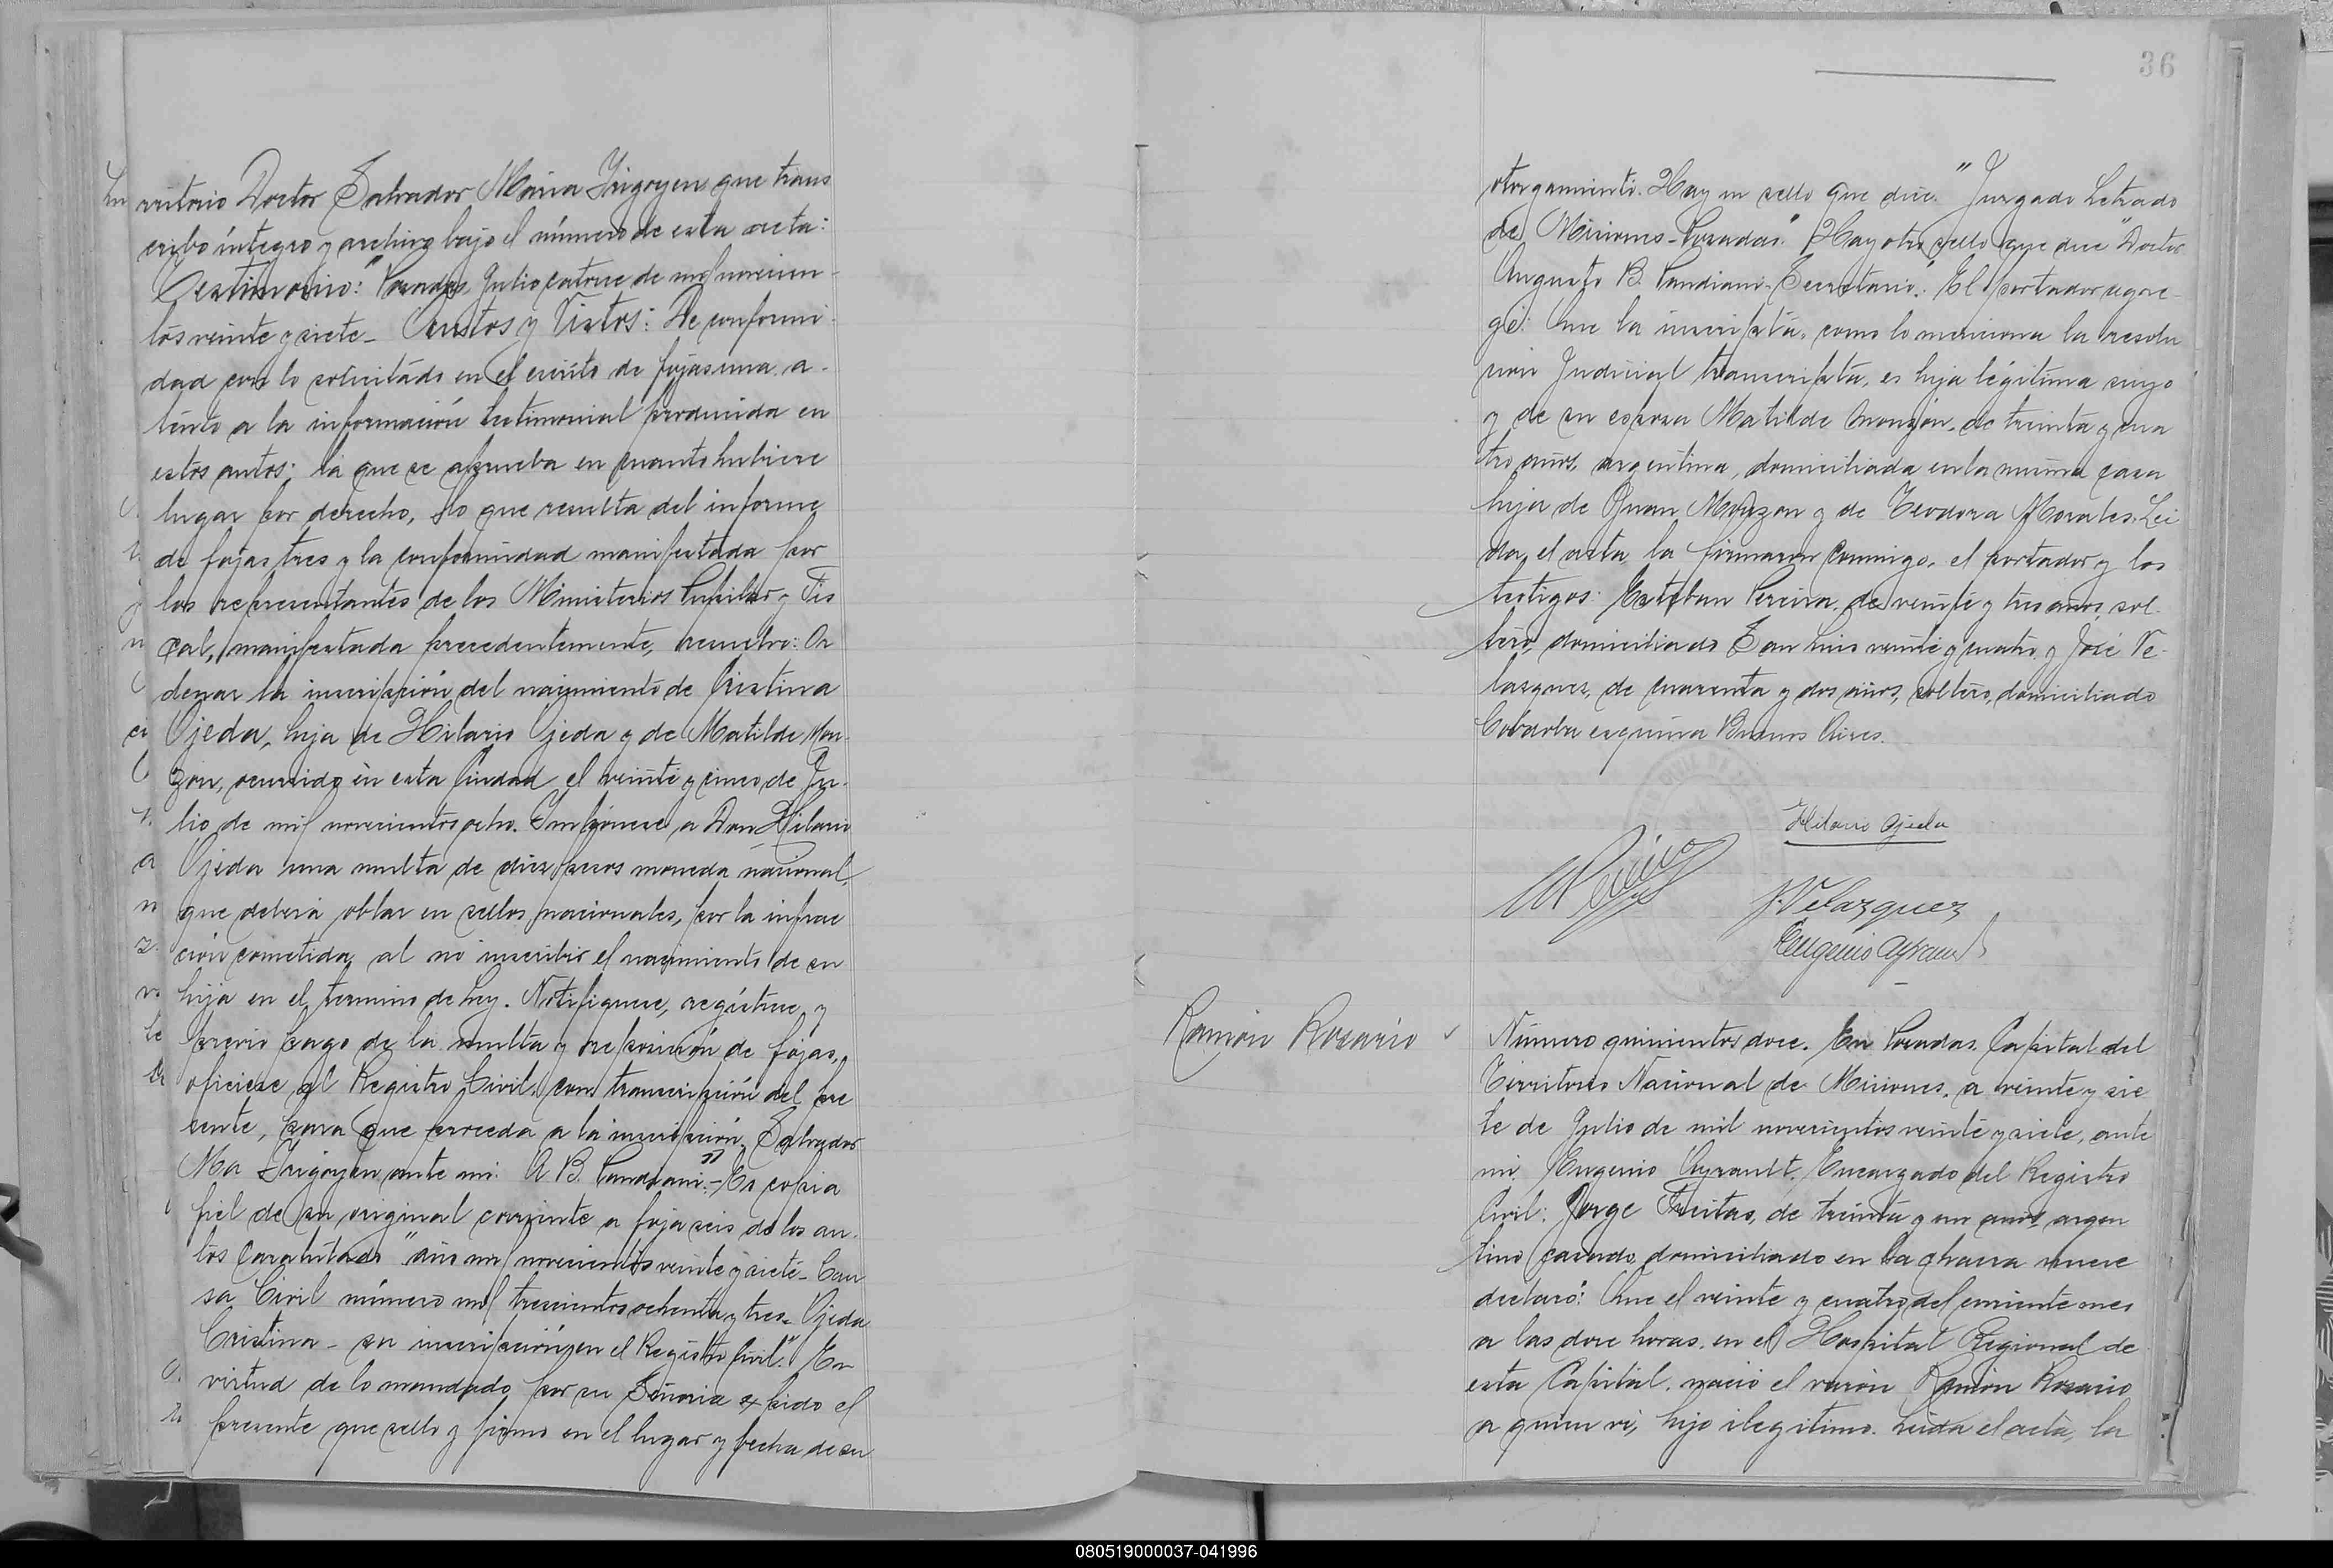 rritorio Doctor Salvador Maria Irigoyen que trans
cribo íntegro y archivo bajo el número de esta acta:
Testimonio: "Posadas, Julio catorce de mil novecien-
tos veinte y siete_ Autos y Vistos: De conformi-
dad con lo solicitado en el escrito de fojas una, a-
tento a la información testimonial producida en
estos autos; la que se aprueba en cuanto hubiere
lugar por derecho, lo que resulta del informe
de fojas tres y la conformidad manifestada por
los representantes de los Ministerios Pupilar y Fis
cal, manifestada precedentemente, resuelvo: Or
denar la inscripción del nacimiento de Cristina
Ojeda, hija de Hilario Ojeda y de Matilde Mon-
zon, ocurrido en esta Ciudad el veinte y cinco de Ju-
lio de mil novecientos ocho. Impónese a Don Hilario
Ojeda una multa de diez pesos moneda nacional,
que deberá oblar en sellos nacionales, por la infrac
ción cometida al no inscribir el nacimiento de su
hija en el termino de Ley. Notifiquese, regístrese y
previo pago de la multa y reposición de fojas,
oficiese al Registro Civil, con transcripción del pre
sente, para que proceda a la inscripción, Salvador
Ma Irigoyen ante mi: A B. Pandiani"_ Es copia
fiel de su original corriente a foja seis de los au-
tos caratulados "año mil novecientos veinte y siete_ Cau
sa Civil número mil trescientos ochenta y tres_ Ojeda
Cristina_ su inscripción en el Registro Civil." En
virtud de lo mandado por su Señoria expido el
presente que sello y firmo en el lugar y fecha de su
36
otorgamiento. Hay un sello que dice. "Juzgado Letrado
de Misiones_Posadas." Hay otro sello que dice "Doctor
Augusto B. Pandiani_Secretario". El portador agre-
gó: Que la inscripta, como lo menciona la resolu
cion Judicial transcripta, es hija légitima suya
y de su esposa Matilde Monzón, de treinta y cua
tro años, argentina, domiciliada en la misma casa
hija de Juan Monzon y de Teodora Morales. Lei
da el acta, la firmaron conmigo, el portador y los
testigos: Esteban Pereira, de veinte y tres años, sol-
tero, domiciliado San Luis veinte y cuatro y José Ve-
lasquez, de cuarenta y dos años, soltero, domiciliado
Córdoba esquina Buenos Aires.
Hilario Ojeda
J. Velazquez
Eugenio Ayrault
Ramón Rosario
Número quinientos doce. En Posadas, Capital del
Territorio Nacional de Misiones, a veinte y sie
te de Julio de mil novecientos veinte y siete, ante
mi, Eugenio Ayrault, Encargado del Registro
Civil: Jorge Freitas, de treinta y un años, argen
tino, casado, domiciliado en la chacra nueve
declaró: Que el veinte y cuatro del corriente mes
a las doce horas, en el Hospital Regional de
esta Capital, nació el varón Ramón Rosario
a quien vi, hijo ilegitimo. Leida el acta, la
080519000037-041996